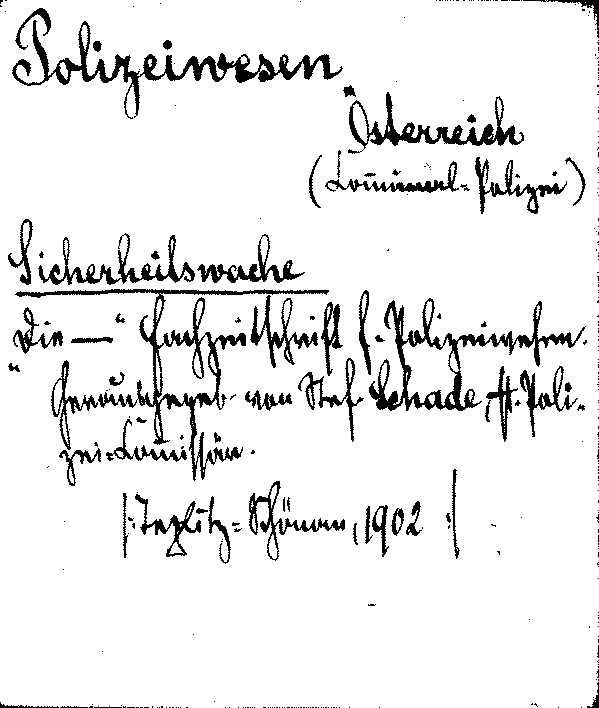 Polizeiwesen
Österreich
(Com̄unal-Polizei)
Sicherheitswache
„Die —“ Fachzeitschrift f. Polizeiwesen.
Herausgegeb. von Stef. Schade, st. Poli-
zei-Com̄issär.
|: Teplitz-Schönau, 1902 :|